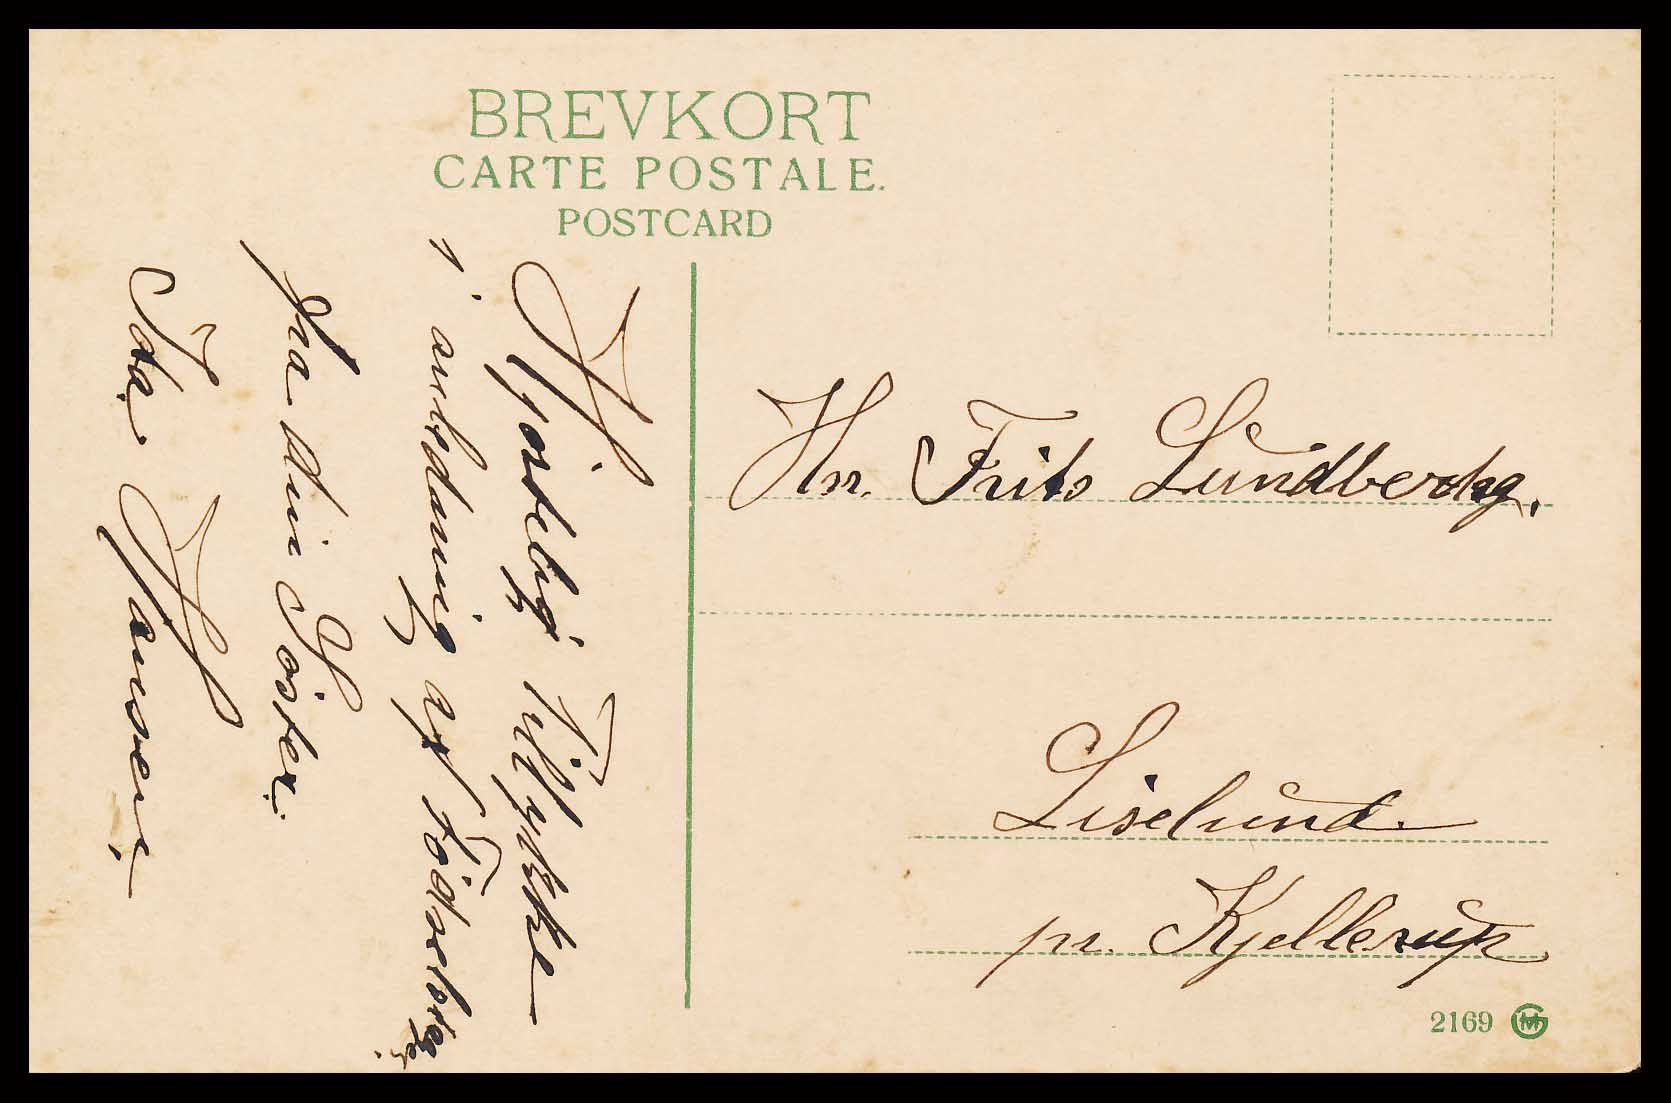 BREVKORT
CARTE POSTALE.
POSTCARD
Hjerteligt Tillykke
i anledning af Födselsdagen.
fra din Söster.
Ida. Hansen.
Hr. Frits Lundberg.
Liselund
pr. Kjellerup
2169